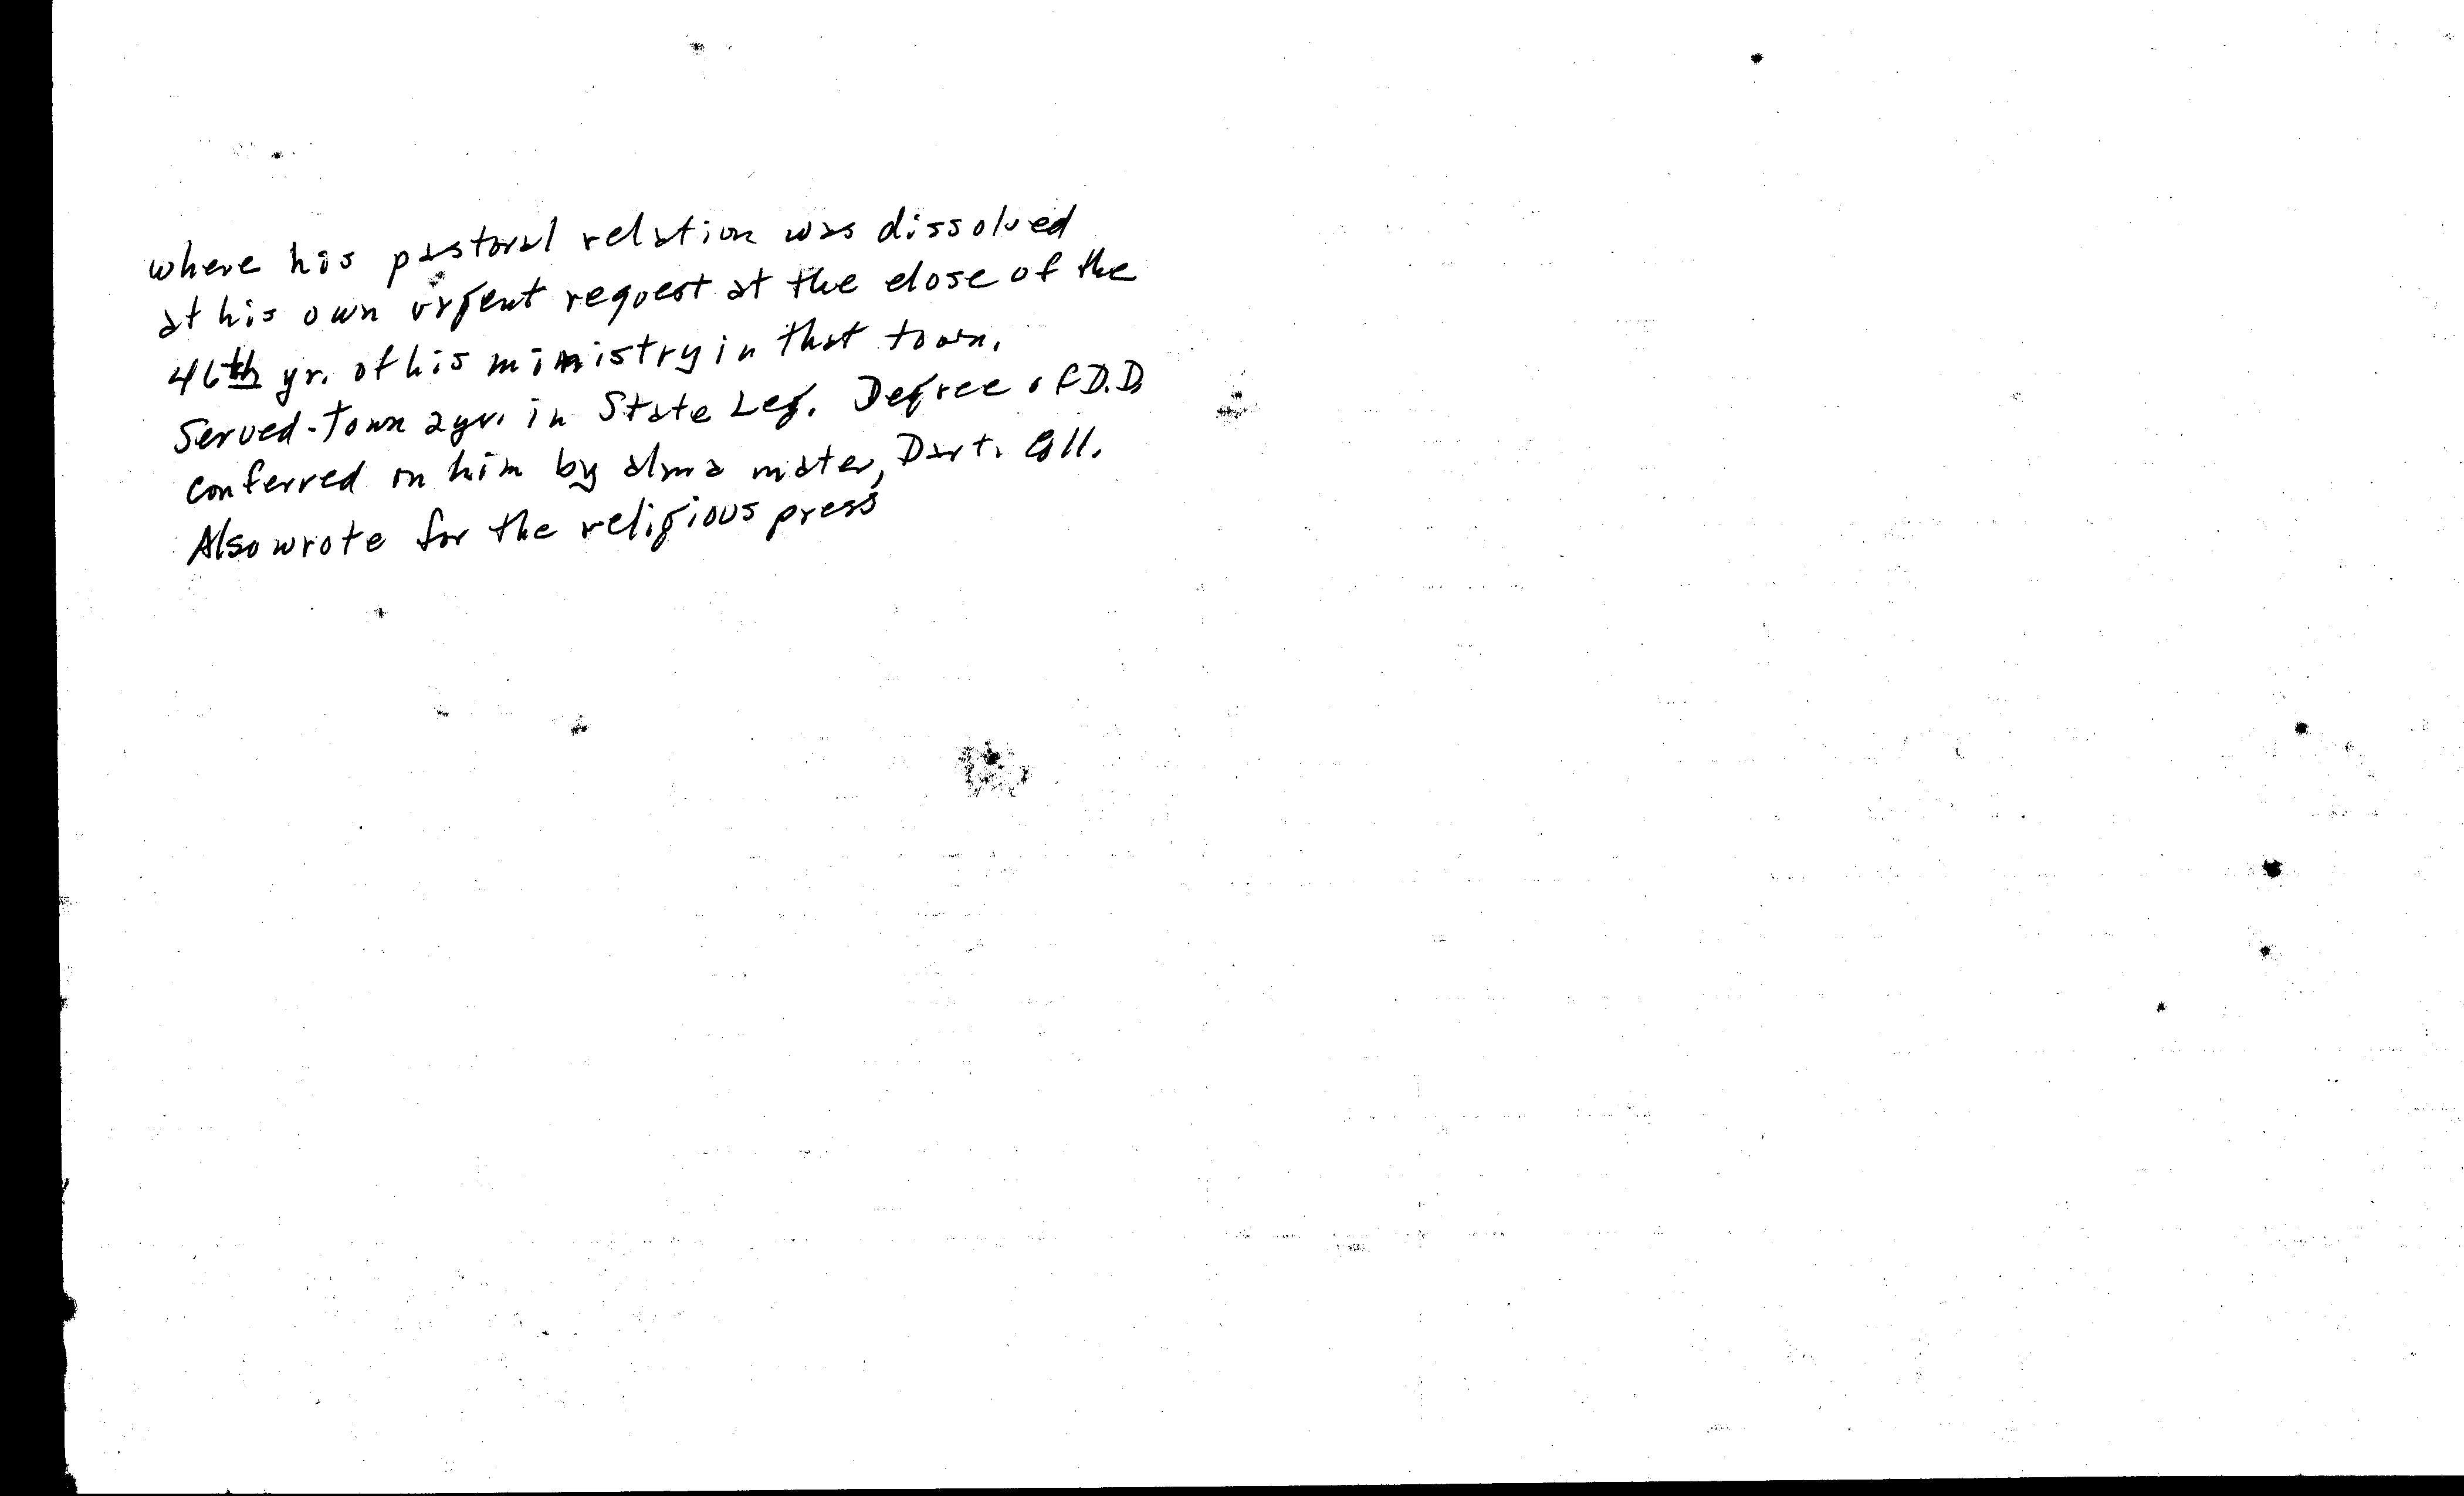 where his pastoral relation was dissolved
at his own urgent request at the close of the
46th yr. of his ministry in that town.
Served - Town 2 yr. in State Leg. Degree of D.D.
conferred on him by alma mater, Dart. Coll.
Also wrote for the religious press